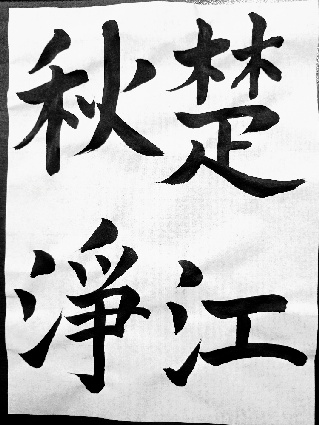 楚江
秋淨